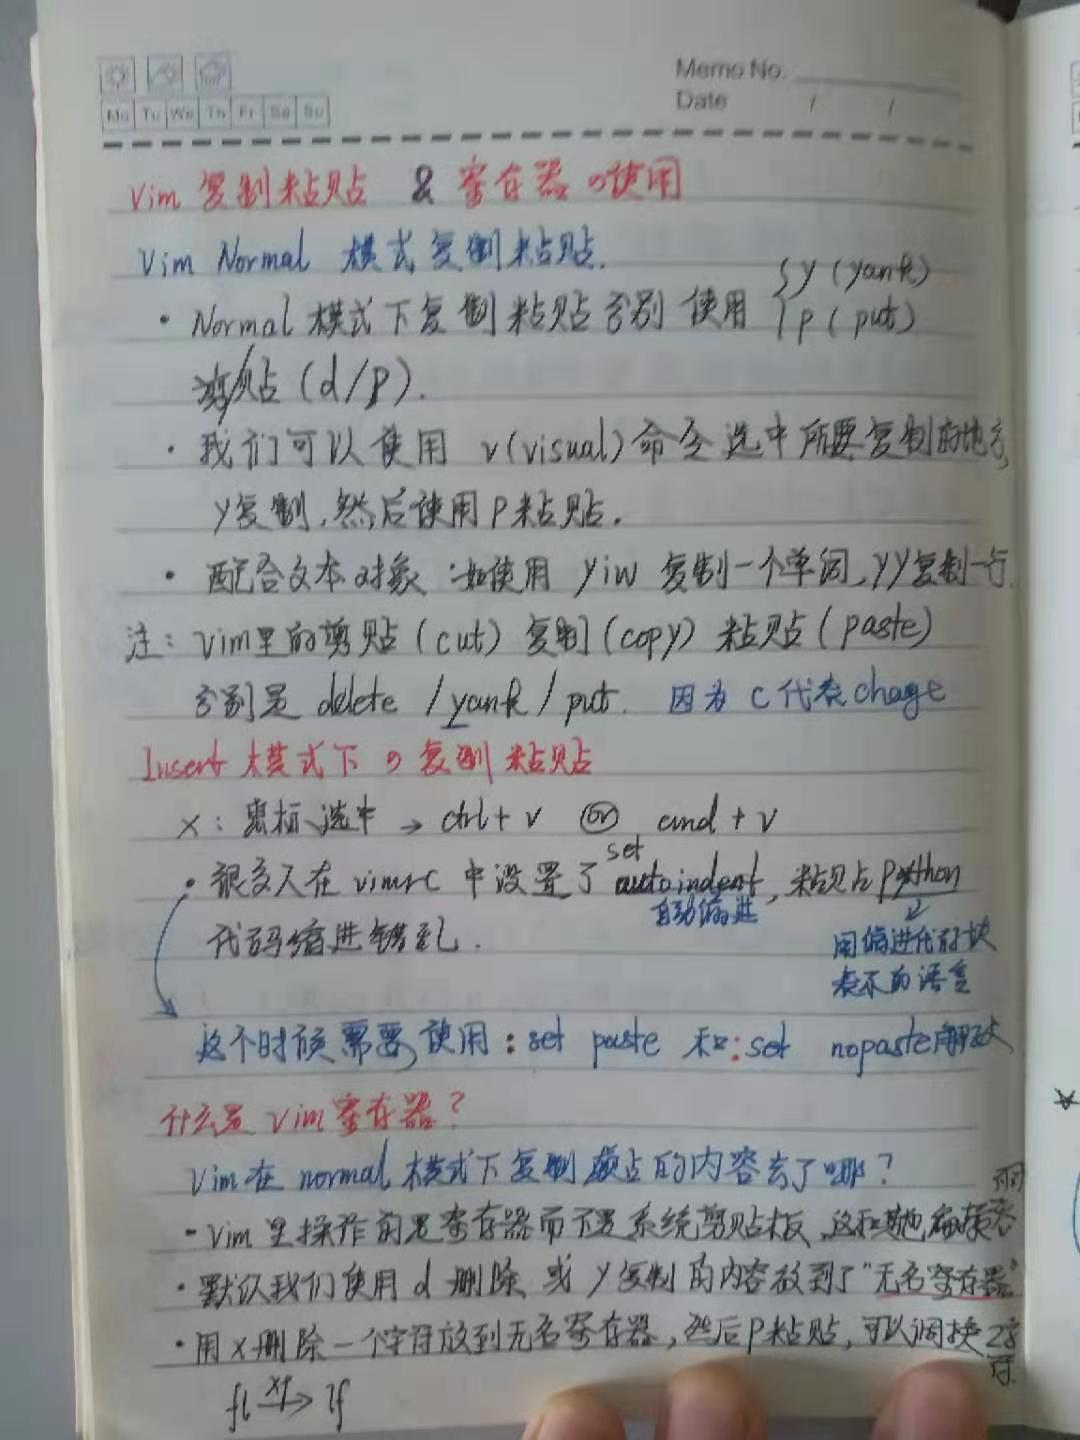 Memo No.
Date / /
Mo Tu We Th Fr Sa Su
Vim 复制粘贴 & 寄存器の使用
Vim Normal 模式复制粘贴.
· Normal 模式下复制粘贴分别使用 { y (yank)
p (put)
剪贴 (d/p).
· 我们可以使用 v(visual) 命令选中所要复制的地方,
y复制,然后使用p粘贴.
· 配合文本对象:如使用 yiw 复制一个单词,yy复制一行.
注: Vim里的剪贴 (cut) 复制 (copy) 粘贴 (paste)
分别是 delete / yank / put. 因为 C 代表 chage
Insert 模式下の复制粘贴
x: 鼠标选中 → ctrl + v or cmd + v
· 很多人在 vimrc 中设置了 set autoindent, 粘贴 Python
自动缩进
代码缩进错乱.
用缩进代码块
表示的语言
这个时候需要使用 :set paste 和 :set nopaste 解决
什么是 Vim 寄存器?
Vim 在 normal 模式下复制粘贴的内容去了哪?
· Vim 里操作的是寄存器而不是系统剪贴板,这和其他编辑器不同
· 默认我们使用 d 删除 或 y 复制的内容放到了"无名寄存器"
· 用 x 删除一个字符放到无名寄存器,然后p粘贴,可以调换2字符.
fl xp→ lf